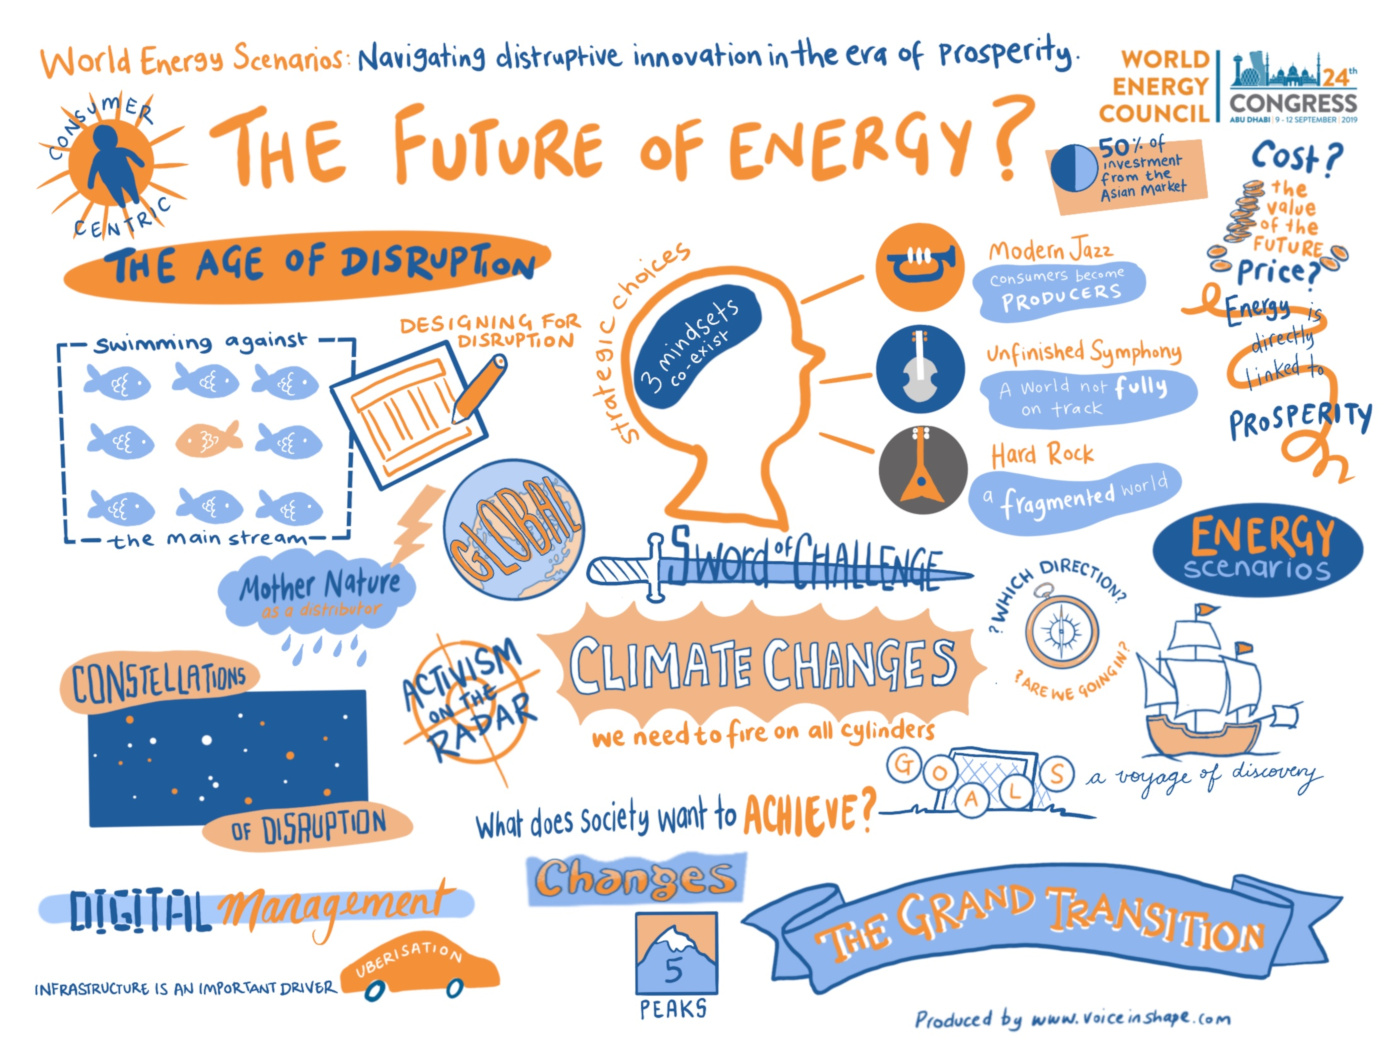 World Energy Scenarios: Navigating distruptive innovation in the era of Prosperity.
WORLD
ENERGY
COUNCIL
24th
CONGRESS
ABU DHABI | 9 - 12 SEPTEMBER | 2019
CONSUMER
CENTRIC
THE FUTURE OF ENERGY?
50% of
investment
from the
Asian Market
Cost?
the
value
of the
FUTURE
Price?
Energy is
directly
linked to
PROSPERITY
THE AGE OF DISRUPTION
Swimming against
the main stream
DESIGNING FOR
DISRUPTION
Strategic choices
3 mindsets
co-exist
Modern Jazz
consumers become
PRODUCERS
Unfinished Symphony
A world not fully
on track
Hard Rock
a fragmented world
GLOBAL
Mother Nature
as a distributor
Sword of CHALLENGE
ENERGY
scenarios
?WHICH DIRECTION?
?ARE WE GOING IN?
a voyage of discovery
CONSTELLATIONS
OF DISRUPTION
ACTIVISM
ON THE
RADAR
CLIMATE CHANGES
we need to fire on all cylinders
What does society want to ACHIEVE?
GOALS
DIGITAL Management
UBERISATION
INFRASTRUCTURE IS AN IMPORTANT DRIVER
Changes
5
PEAKS
THE GRAND TRANSITION
Produced by www.voiceinshape.com